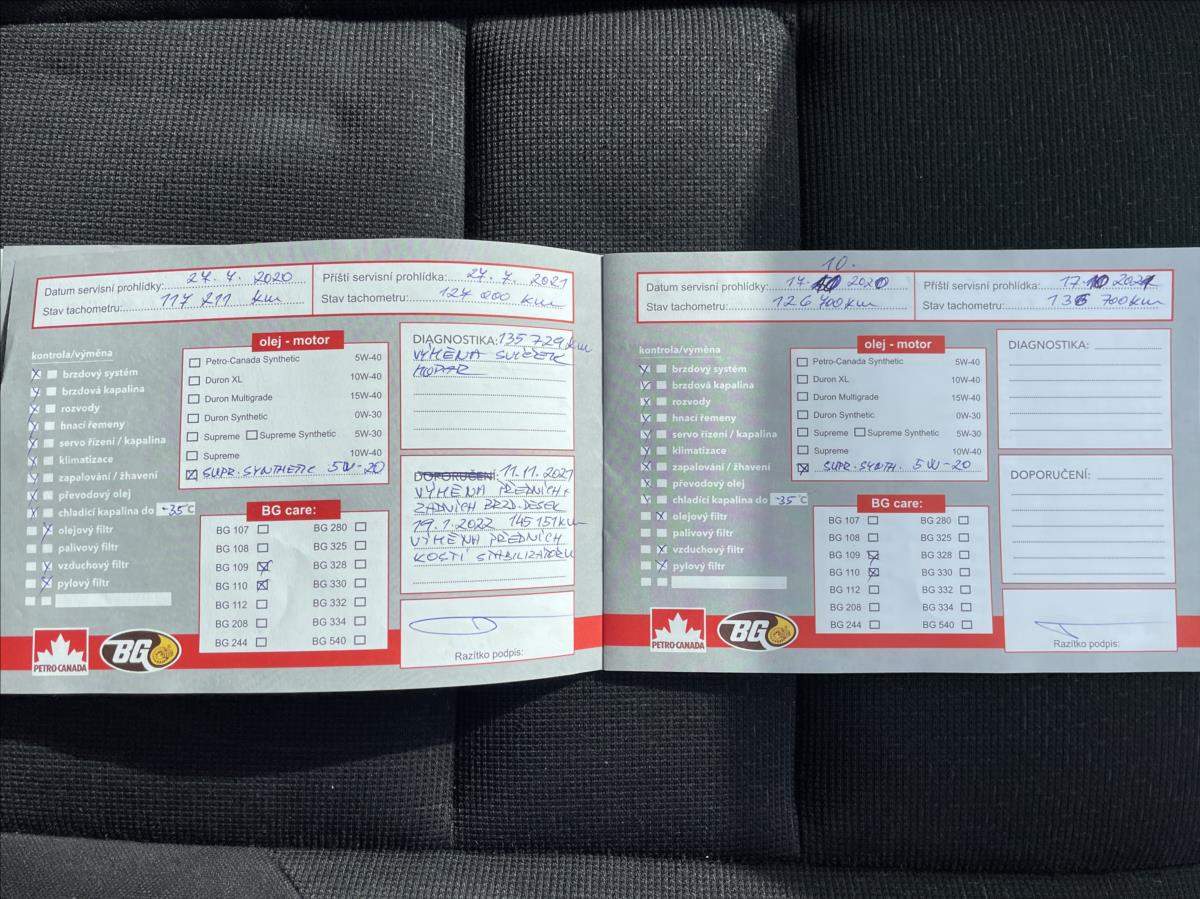 Datum servisní prohlídky: 27. 7. 2020
Stav tachometru: 117 211 km
Příští servisní prohlídka: 27. 7. 2021
Stav tachometru: 127 000 km
kontrola/výměna
brzdový systém
brzdová kapalina
rozvody
hnací řemeny
servo řízení / kapalina
klimatizace
zapalování / žhavení
převodový olej
chladící kapalina do -35°C
olejový filtr
palivový filtr
vzduchový filtr
pylový filtr
olej - motor
Petro-Canada Synthetic 5W-40
Duron XL 10W-40
Duron Multigrade 15W-40
Duron Synthetic 0W-30
Supreme Supreme Synthetic 5W-30
Supreme 10W-40
SUPR. SYNTHETIC 5W-20
BG care:
BG 107 BG 280
BG 108 BG 325
BG 109 BG 328
BG 110 BG 330
BG 112 BG 332
BG 208 BG 334
BG 244 BG 540
DIAGNOSTIKA: 135 729 km
VÝMĚNA SVÍČEK
MOPAR
DOPORUČENÍ: 11.11.2021
VÝMĚNA PŘEDNÍCH +
ZADNÍCH BRZD. DESEK
19.1.2022 145 151 km
VÝMĚNA PŘEDNÍCH
KOSTÍ STABILIZÁTORU
Razítko podpis:
PETRO-CANADA
BG
10.
Datum servisní prohlídky: 17. 2020
Stav tachometru: 126 700 km
Příští servisní prohlídka: 17. 10 2021
Stav tachometru: 136 700 km
kontrola/výměna
brzdový systém
brzdová kapalina
rozvody
hnací řemeny
servo řízení / kapalina
klimatizace
zapalování / žhavení
převodový olej
chladící kapalina do -35°C
olejový filtr
palivový filtr
vzduchový filtr
pylový filtr
olej - motor
Petro-Canada Synthetic 5W-40
Duron XL 10W-40
Duron Multigrade 15W-40
Duron Synthetic 0W-30
Supreme Supreme Synthetic 5W-30
Supreme 10W-40
SUPR. SYNTH. 5W-20
BG care:
BG 107 BG 280
BG 108 BG 325
BG 109 BG 328
BG 110 BG 330
BG 112 BG 332
BG 208 BG 334
BG 244 BG 540
DIAGNOSTIKA:
DOPORUČENÍ:
Razítko podpis:
PETRO-CANADA
BG